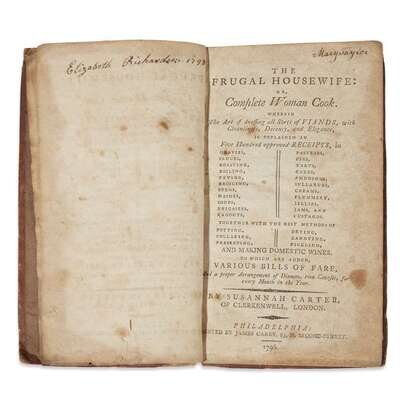 Elizabeth Richardson 1798
Mary
THE
FRUGAL HOUSEWIFE:
OR,
Complete Woman Cook.
WHEREIN
The Art of dressing all Sorts of VIANDS, with
Cleanliness, Decency, and Elegance,
IS EXPLAINED IN
Five Hundred approved RECEIPTS, in
GRAVIES,
SAUCES,
ROASTING,
BOILING,
FRYING,
BROILING,
STEWS,
HASHES,
SOUPS,
FRICASSES,
RAGOUTS,
PASTIES,
PIES,
TARTS,
CAKES,
PUDDINGS,
SYLLABUBS,
CREAMS,
FLUMMERY,
JELLIES,
JAMS, AND
CUSTARDS.
TOGETHER WITH THE BEST METHODS OF
POTTING,
COLLARING,
PRESERVING,
DRYING,
CANDYING,
PICKLING,
AND MAKING DOMESTIC WINES.
TO WHICH ARE ADDED,
VARIOUS BILLS OF FARE,
a proper Arrangement of Dinners, two Courses, for
every Month in the Year.
BY SUSANNAH CARTER,
OF CLERKENWELL, LONDON.
PHILADELPHIA:
PRINTED BY JAMES CAREY, SECOND-STREET.
1796.